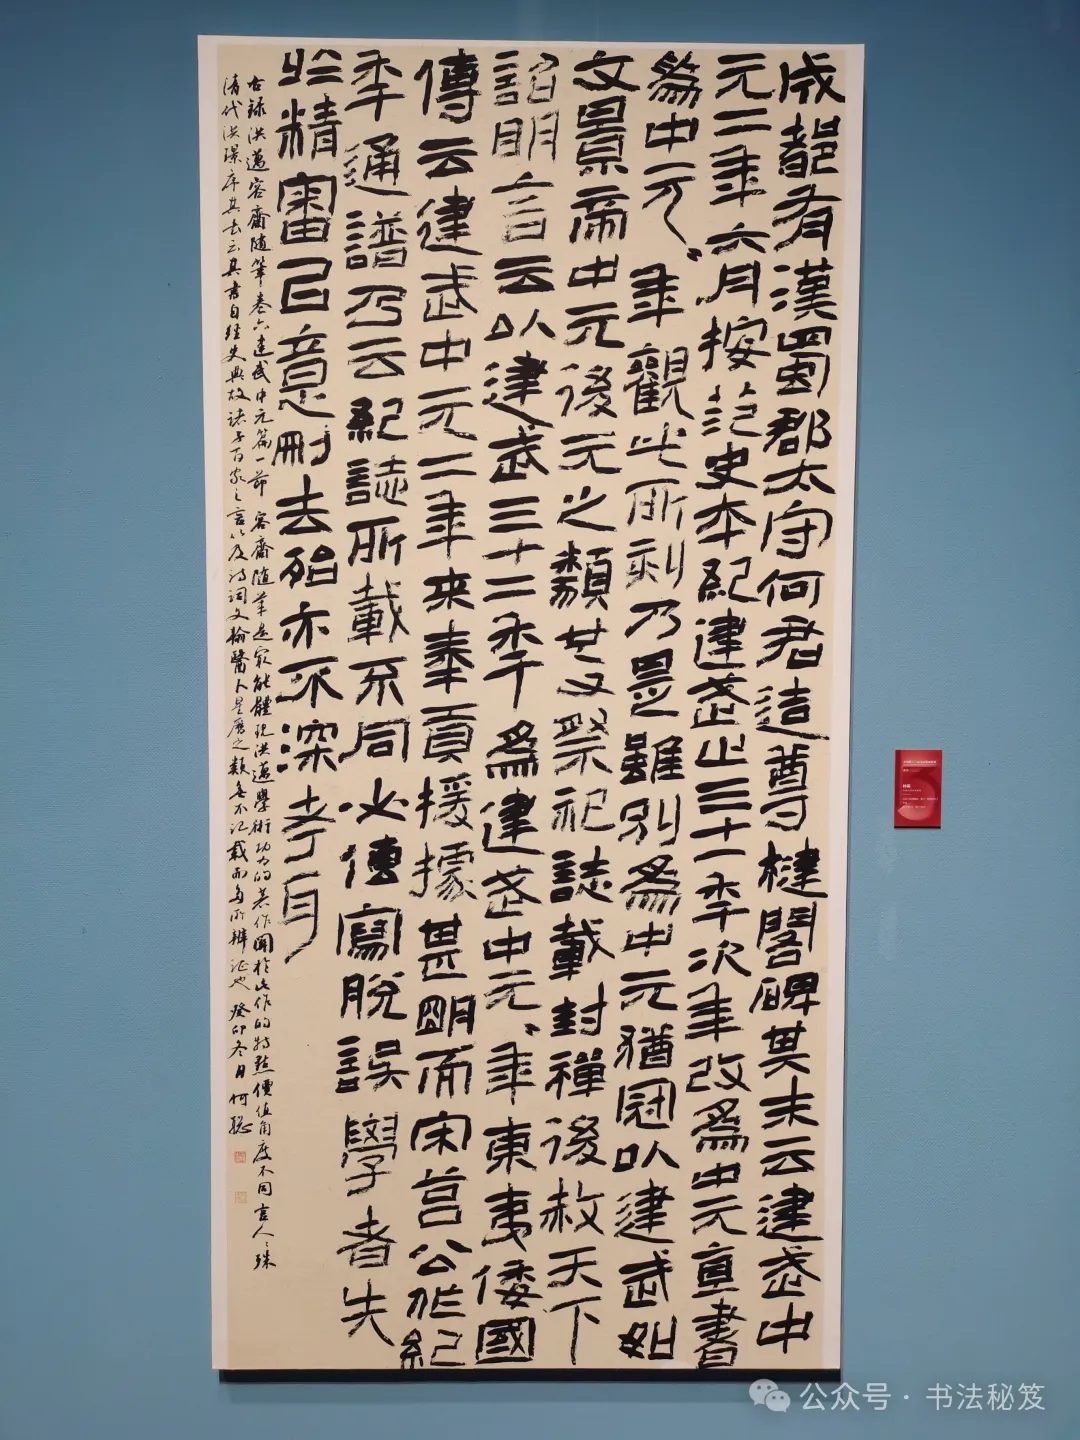 成都有漢蜀郡太守何君造尊楗閣碑其末云建武中
元二年六月按范史本紀建武止三十一年次年改為中元直書
為中元〻年觀此所刻乃是雖別為中元猶冠以建武如
文景帝中元後元之類也又祭祀誌載封禪後赦天下
詔明言云以建武三十二年為建武中元〻年東夷倭國
傳云建武中元二年來奉貢援據甚明而宋莒公作紀
年通譜乃云紀誌所載不同必傳寫脫誤學者失
於精審以意刪去殆亦不深考耳
右錄洪邁容齋隨筆卷六建武中元篇一節 容齋隨筆是最能體現洪邁學術功力的著作關於此作的特點價值角度不同言人〻殊
清代洪璟序其書云其書自經史典故諸子百家之言以及詩詞文翰醫卜星曆之類無不記載而多所辯證也 癸卯冬日何聰
公众号·书法秘笈